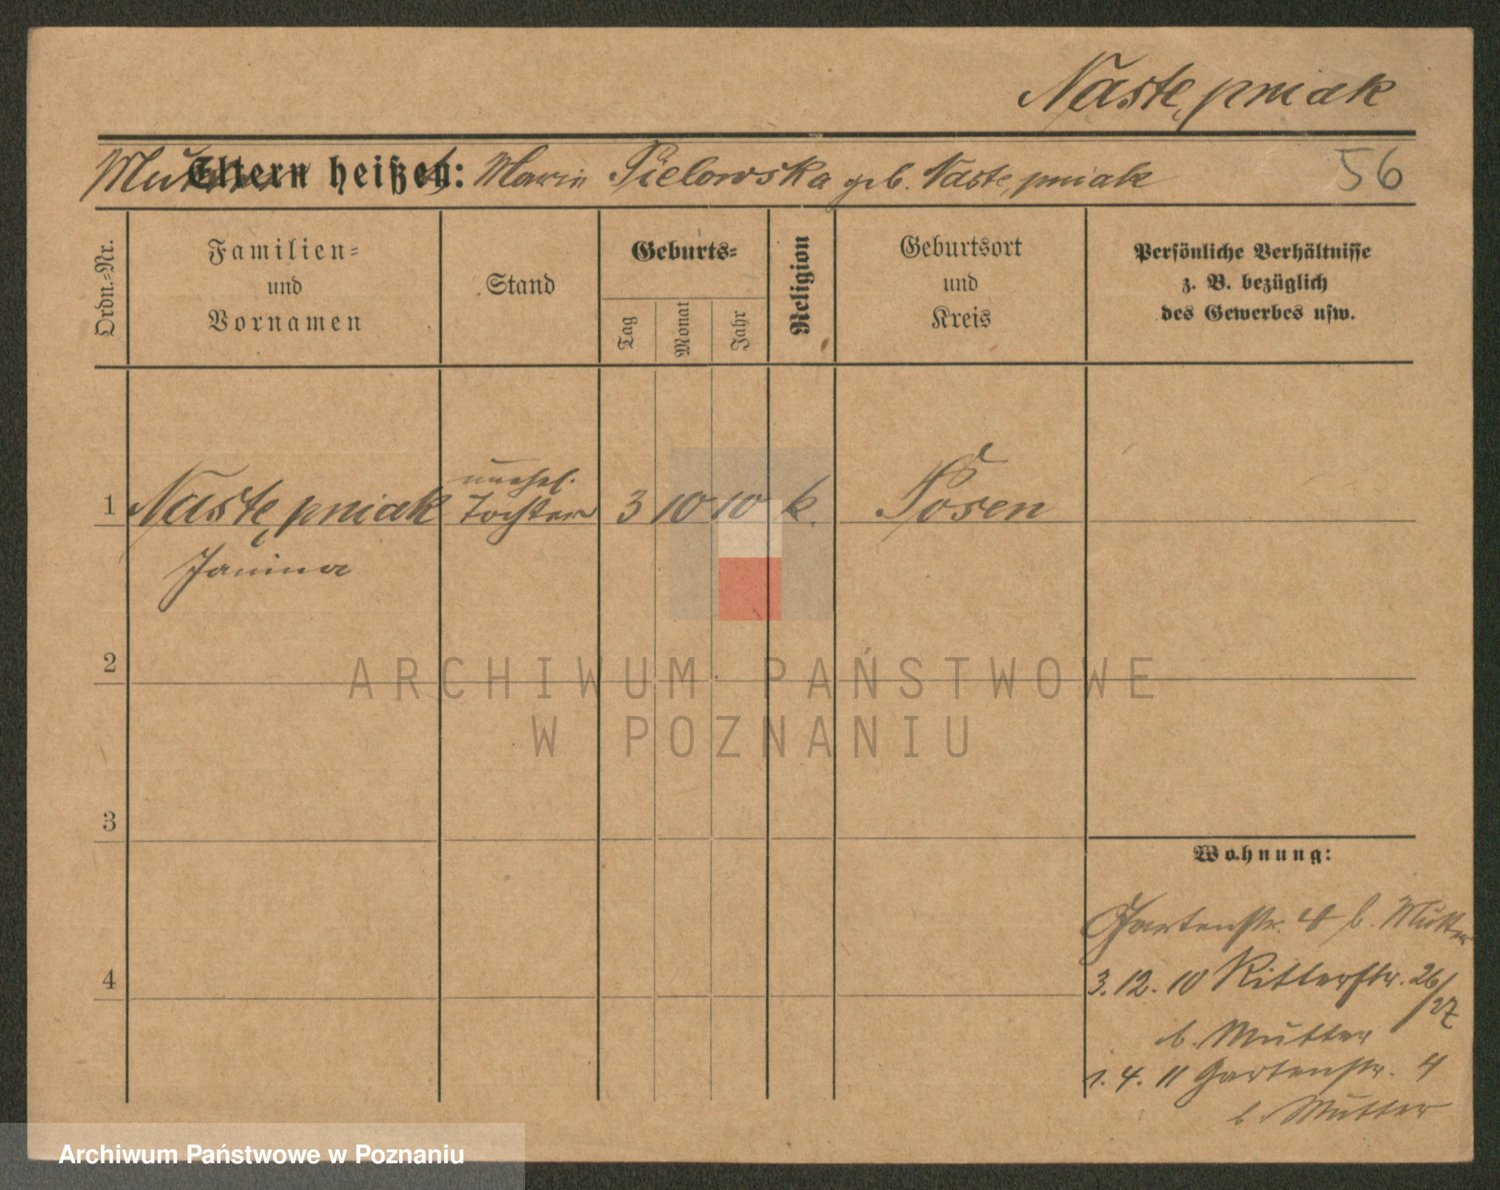 Następniak
Mutter Eltern heißen: Marie Pielowska geb. Następniak 56
Ordn.=Nr.
Familien=
und
Vornamen
Stand
Geburts=
Tag
Monat
Jahr
Religion
Geburtsort
und
Kreis
Persönliche Verhältnisse
z. B. bezüglich
des Gewerbes usw.
1 Następniak unehel. Tochter 3 10 10 k. Posen
Janina
2
3
4
Wohnung:
Gartenstr. 4 b. Mutter
3.12.10 Ritterstr. 26/27
b. Mutter
1.4.11 Gartenstr. 4
b. Mutter
ARCHIWUM PAŃSTWOWE
W POZNANIU
Archiwum Państwowe w Poznaniu